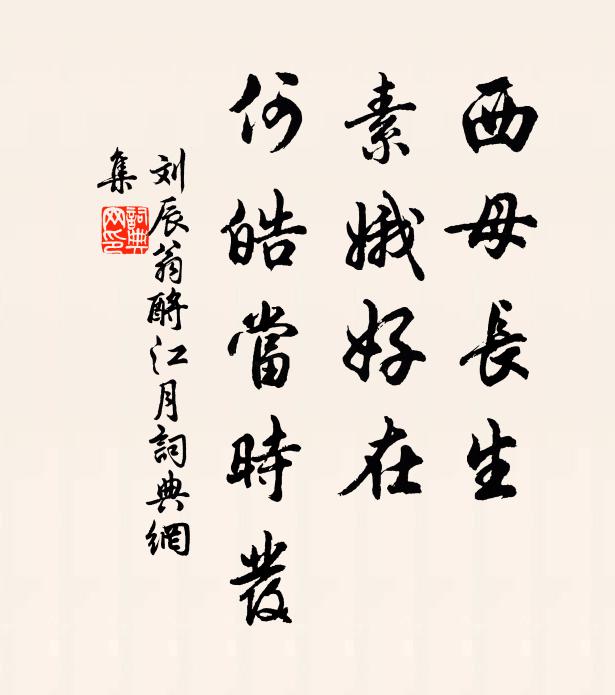 西母長生
素娥好在
何皓當時髮
刘辰翁酹江月詞典網
集
詞典
网印